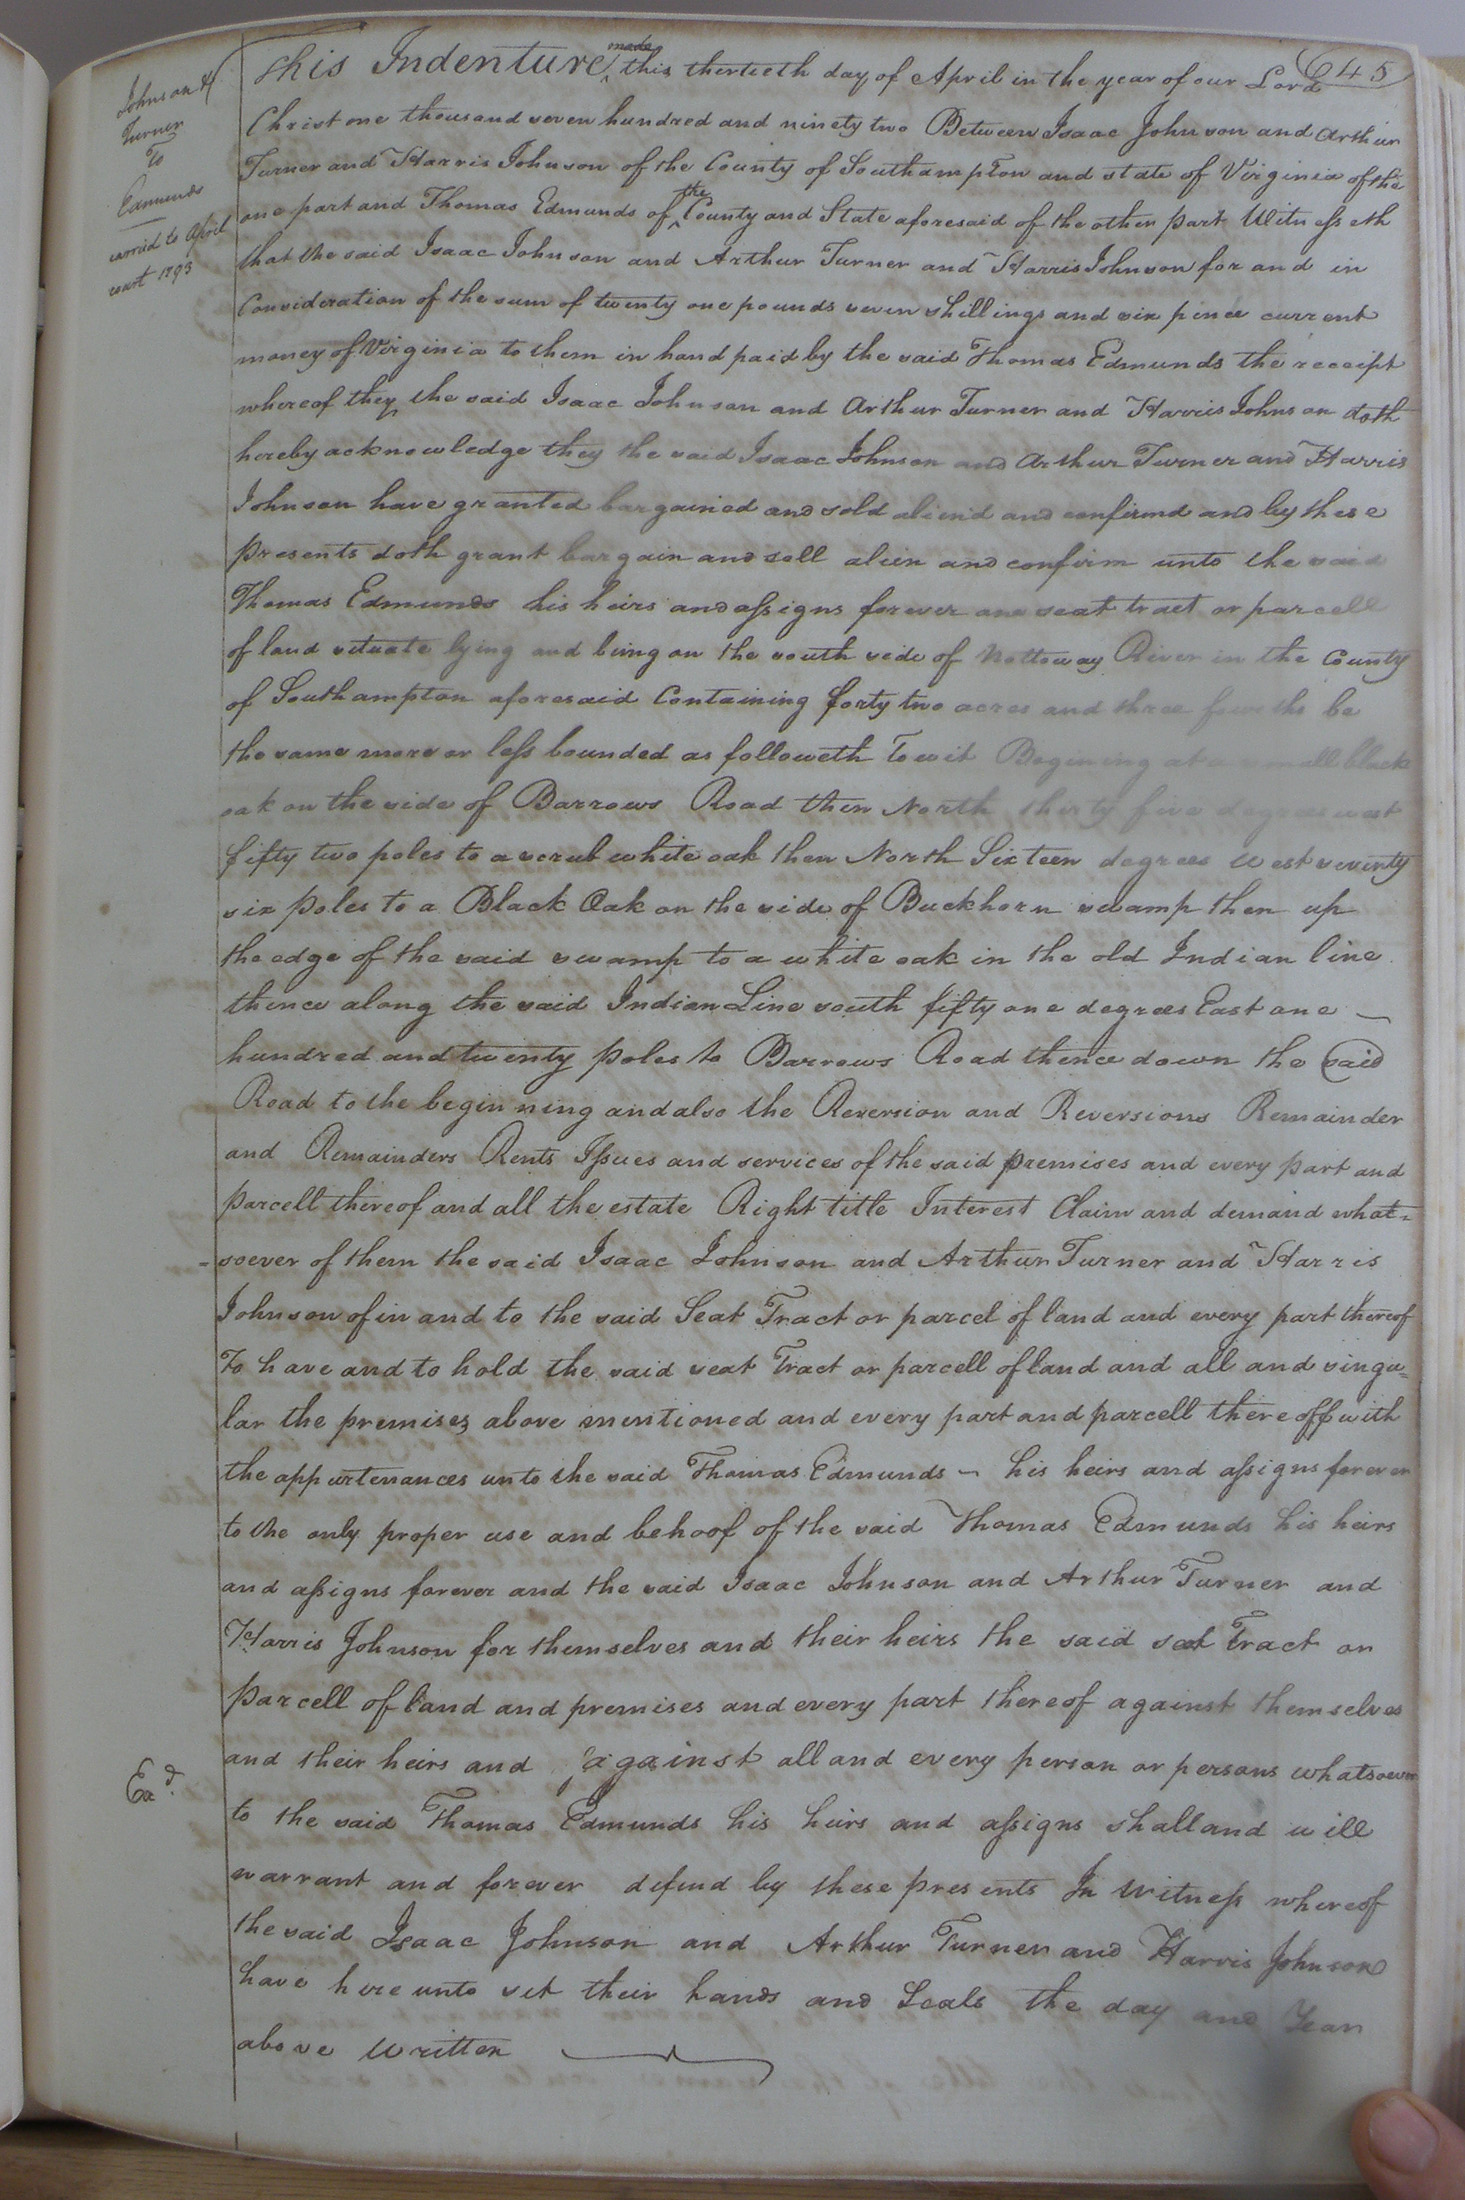 645
Johnson &
Turner
To
Edmunds
carried to April
court 1793
This Indenture made this thirtieth day of April in the year of our Lord
Christ one thousand seven hundred and ninety two Between Isaac Johnson and Arthur
Turner and Harris Johnson of the County of Southampton and state of Virginia of the
one part and Thomas Edmunds of the County and State aforesaid of the other part Witnesseth
that the said Isaac Johnson and Arthur Turner and Harris Johnson for and in
Consideration of the sum of twenty one pounds seven shillings and six pince current
money of Virginia to them in hand paid by the said Thomas Edmunds the receipt
whereof they the said Isaac Johnson and Arthur Turner and Harris Johnson doth
hereby acknowledge they the said Isaac Johnson and Arthur Turner and Harris
Johnson have granted bargained and sold aliend and confirmd and by these
presents doth grant bargain and sell alien and confirm unto the said
Thomas Edmunds his heirs and assigns forever one seat tract or parcell
of land situate lying and being on the south side of Nottoway River in the County
of Southampton aforesaid Containing forty two acres and three fourths be
the same more or less bounded as followeth Towit Begining at a small black
oak on the side of Barrows Road then North thirty five degrees west
fifty two poles to a scrub white oak then North Sixteen degrees West seventy
six poles to a Black Oak on the side of Buckhorn swamp then up
the edge of the said swamp to a white oak in the old Indian line
thence along the said Indian Line south fifty one degrees East one
hundred and twenty poles to Barrows Road thence down the said
Road to the beginning and also the Reversion and Reversions Remainder
and Remainders Rents Issues and services of the said premises and every part and
parcell thereof and all the estate Right title Interest Claim and demand what=
=soever of them the said Isaac Johnson and Arthur Turner and Harris
Johnson of in and to the said Seat Tract or parcel of land and every part thereof
To have and to hold the said seat Tract or parcell of land and all and singu=
lar the premises above mentioned and every part and parcell thereoff with
the appurtenances unto the said Thomas Edmunds his heirs and assigns forever
to the only proper use and behoof of the said Thomas Edmunds his heirs
and assigns forever and the said Isaac Johnson and Arthur Turner and
Harris Johnson for themselves and their heirs the said seat Tract or
parcell of land and premises and every part thereof against themselves
and their heirs and against all and every person or persons whatsoever
Exd.
to the said Thomas Edmunds his heirs and assigns shall and will
warrant and forever defend by these presents In Witness whereof
the said Isaac Johnson and Arthur Turner and Harris Johnson
have here unto set their hands and Seals the day and Year
above written